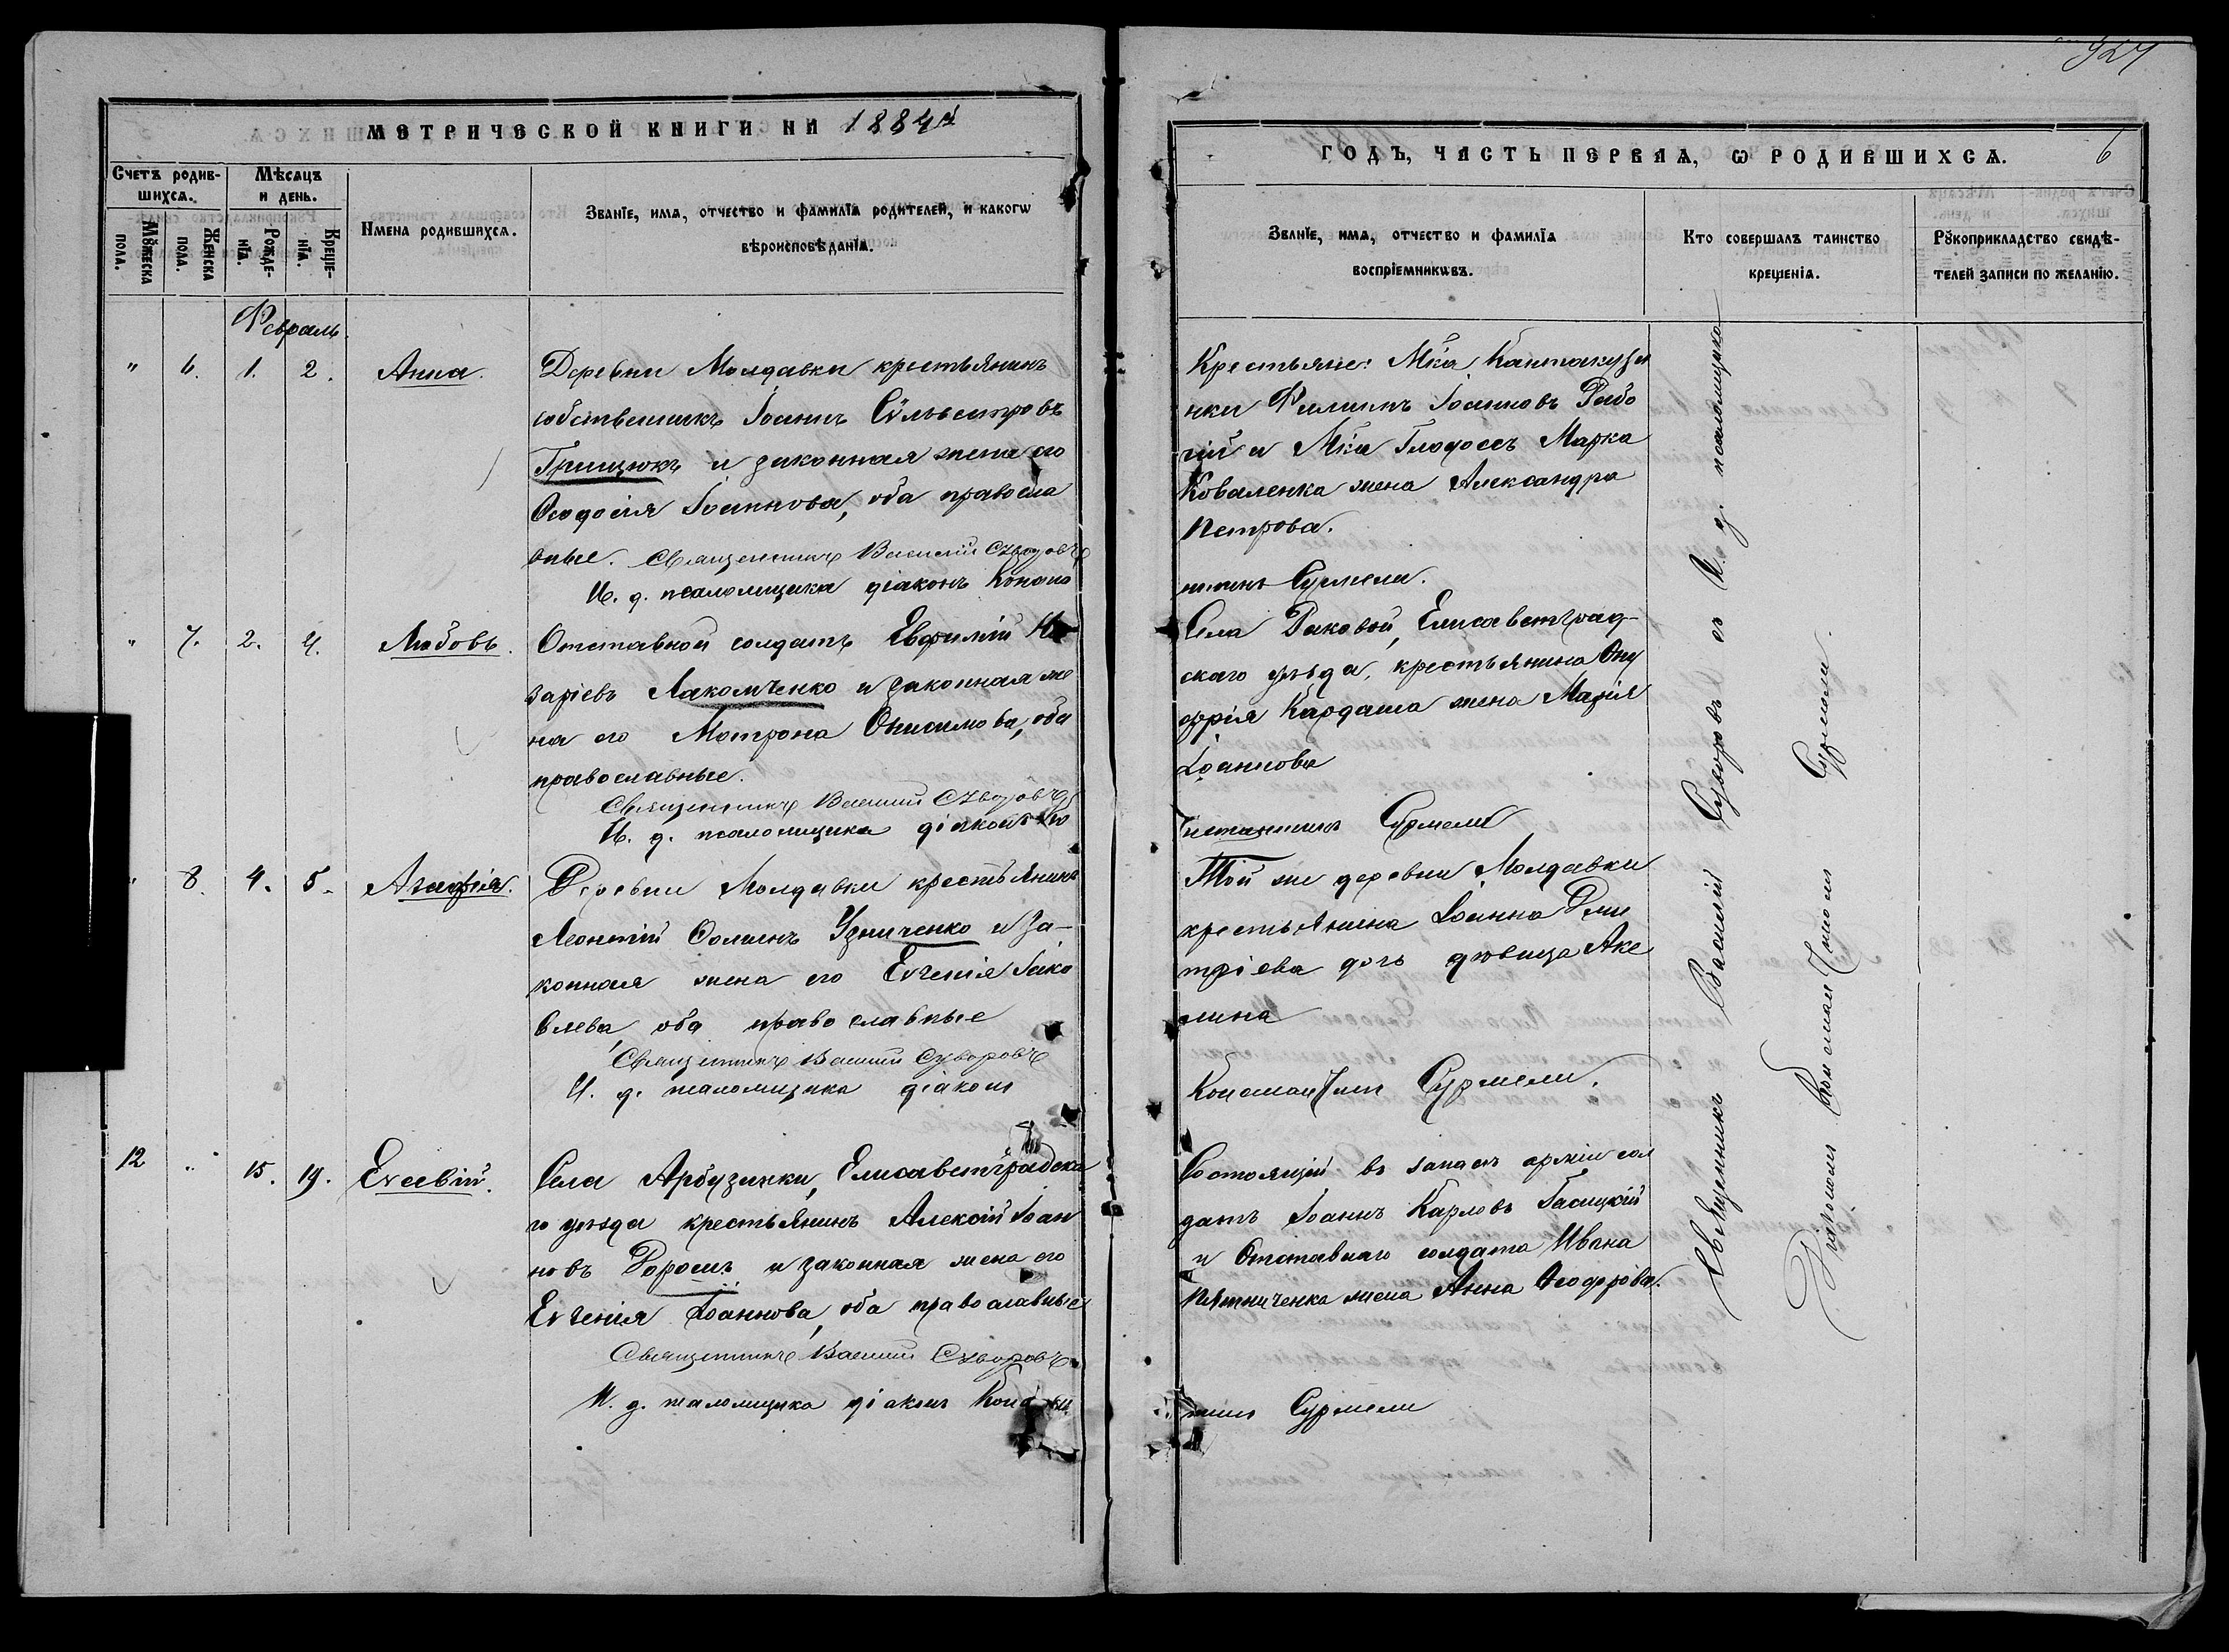 927
МЕТРИЧЕСКОЙ КНИГИ НА 1884й
Счетъ родив-
шихсѧ.
Мѣсѧцъ
и день.
Мꙋжеска
пола.
Женска
пола.
Рожде-
нїѧ.
Креще-
нїѧ.
Имена родившихсѧ.
Званїе, имѧ, отчество и фамилїѧ родителей, и какогѡ
вѣроисповѣданїѧ.
Февраль.
" 6. 1. 2. Анна. Деревни Молдавки крестьянинъ
собственникъ Іоаннъ Сѵльвестровъ
Грищюкъ и законная жена его
Ѳеодосія Іоаннова, оба правосла
вные. Священникъ Василій Суворовъ
И. д. псаломщика діаконъ Конста
" 7. 2. 4. Любовь. Отставной солдатъ Евфимій На
заріевъ Лакомченко и законная же
на его Мотрона Онисимова, оба
православные.
Священникъ Василій Суворовъ
И. д. псаломщика діаконъ Ко
" 8. 4. 5. Агафія. Деревни Молдавки крестьянинъ
Леонтій Ѳоминъ Узниченко и за-
конная жена его Евгенія Іако
влева, оба православные
Священникъ Василій Суворовъ
И. д. псаломщика діаконъ
12 " 15. 19. Евсевій. Села Арбузинки, Елисаветградска
го уѣзда крестьянинъ Алексій Іоан
новъ Дорошъ и законная жена его
Евгенія Іоаннова, оба православные
Священникъ Василій Суворовъ
И. д. псаломщика діаконъ Конста
ГОДЪ, ЧАСТЬ ПЕРВАѦ, Ѡ РОДИВШИХСѦ. 6
Званїе, имѧ, отчество и фамилїѧ
воспрїемникѡвъ.
Кто совершалъ таинство
крещенїѧ.
Рꙋкоприкладство свидѣ-
телей записи по желанїю.
Крестьяне: Мка Кантакузи
нки Филиппъ Іоанновъ Рабо
чій и Мка Глодосъ Марка
Коваленка жена Александра
Петрова.
нтинъ Сурмели.
Села Раковой, Елисаветград-
скаго уѣзда, крестьянина Ону
фрія Кардаша жена Марія
Іоаннова
нстантинъ Сурмели
Той же деревни Молдавки
крестьянина Іоанна Дми
тріева дочь дѣвица Аке
лина
Константинъ Сурмели.
Состоящій въ запасѣ арміи сол
датъ Іоаннъ Карловъ Гасицкій
и Отставнаго солдата Ивана
Пятниченка жена Анна Ѳеодорова.
нтинъ Сурмели
Священникъ Василій Суворовъ съ И. д. псаломщика
Діакономъ Константиномъ Сурмели.